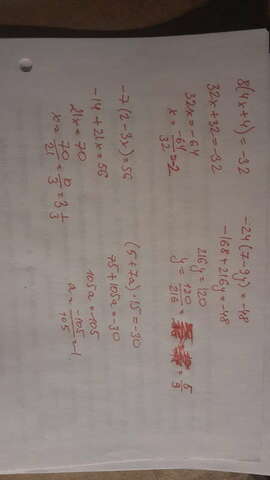 8(4x+4)=-32
32x+32=-32
32x=-64
x=-64/32=-2
-7(2-3x)=56
-14+21x=56
21x=70
x=70/21=10/3=3 1/3
-24(7-9y)=-48
-168+216y=-48
216y=120
y=120/216=5/9
(5+7a)·15=-30
75+105a=-30
105a=-105
a=-105/105=-1